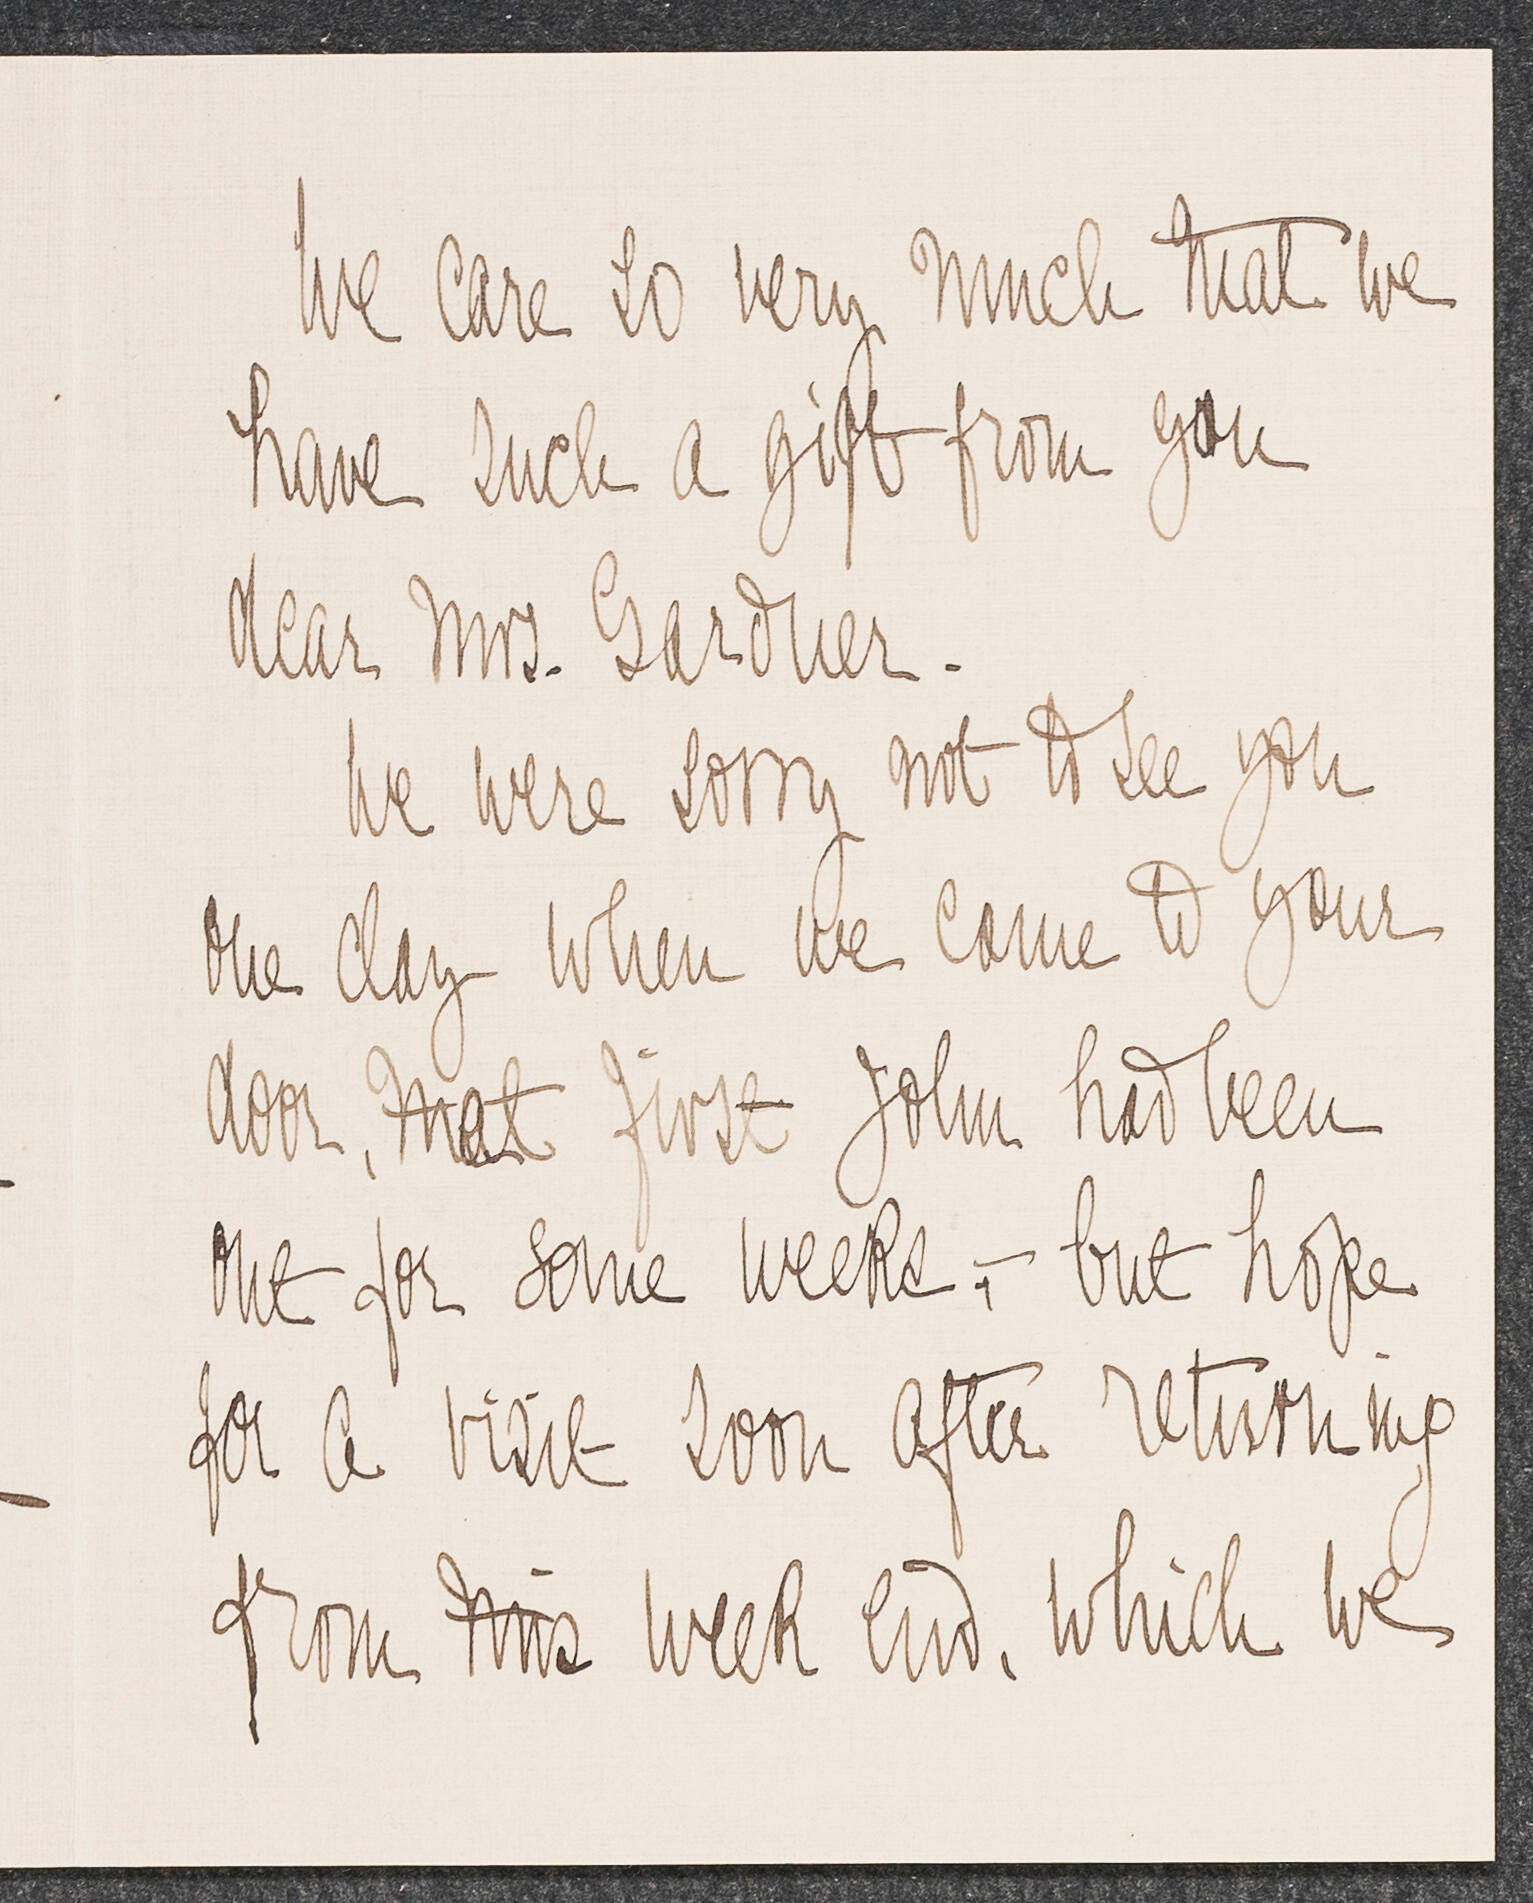 We care so very much that we
have such a gift from you
dear Mrs. Gardner.
We were sorry not to see you
one day when we came to your
door, that first John had been
out for some weeks, - but hope
for a visit soon after returning
from this week end, which we